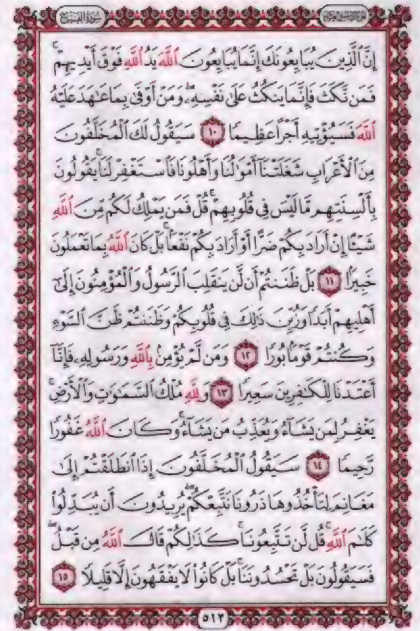 سُورَةُ الفَتْحِ
إِنَّ ٱلَّذِينَ يُبَايِعُونَكَ إِنَّمَا يُبَايِعُونَ ٱللَّهَ يَدُ ٱللَّهِ فَوْقَ أَيْدِيهِمْۚ
فَمَن نَّكَثَ فَإِنَّمَا يَنكُثُ عَلَىٰ نَفْسِهِۦۖ وَمَنْ أَوْفَىٰ بِمَا عَٰهَدَ عَلَيْهُ
ٱللَّهَ فَسَيُؤْتِيهِ أَجْرًا عَظِيمًا ١٠ سَيَقُولُ لَكَ ٱلْمُخَلَّفُونَ
مِنَ ٱلْأَعْرَابِ شَغَلَتْنَآ أَمْوَٰلُنَا وَأَهْلُونَا فَٱسْتَغْفِرْ لَنَاۚ يَقُولُونَ
بِأَلْسِنَتِهِم مَّا لَيْسَ فِى قُلُوبِهِمْۚ قُلْ فَمَن يَمْلِكُ لَكُم مِّنَ ٱللَّهِ
شَيْـًٔا إِنْ أَرَادَ بِكُمْ ضَرًّا أَوْ أَرَادَ بِكُمْ نَفْعًۢاۚ بَلْ كَانَ ٱللَّهُ بِمَا تَعْمَلُونَ
خَبِيرًۢا ١١ بَلْ ظَنَنتُمْ أَن لَّن يَنقَلِبَ ٱلرَّسُولُ وَٱلْمُؤْمِنُونَ إِلَىٰٓ
أَهْلِيهِمْ أَبَدًا وَزُيِّنَ ذَٰلِكَ فِى قُلُوبِكُمْ وَظَنَنتُمْ ظَنَّ ٱلسَّوْءِ
وَكُنتُمْ قَوْمًۢا بُورًا ١٢ وَمَن لَّمْ يُؤْمِنۢ بِٱللَّهِ وَرَسُولِهِۦ فَإِنَّآ
أَعْتَدْنَا لِلْكَٰفِرِينَ سَعِيرًا ١٣ وَلِلَّهِ مُلْكُ ٱلسَّمَٰوَٰتِ وَٱلْأَرْضِۚ
يَغْفِرُ لِمَن يَشَآءُ وَيُعَذِّبُ مَن يَشَآءُۚ وَكَانَ ٱللَّهُ غَفُورًا
رَّحِيمًا ١٤ سَيَقُولُ ٱلْمُخَلَّفُونَ إِذَا ٱنطَلَقْتُمْ إِلَىٰ
مَغَانِمَ لِتَأْخُذُوهَا ذَرُونَا نَتَّبِعْكُمْۖ يُرِيدُونَ أَن يُبَدِّلُوا۟
كَلَٰمَ ٱللَّهِۚ قُل لَّن تَتَّبِعُونَا كَذَٰلِكُمْ قَالَ ٱللَّهُ مِن قَبْلُۖ
فَسَيَقُولُونَ بَلْ تَحْسُدُونَنَاۚ بَلْ كَانُوا۟ لَا يَفْقَهُونَ إِلَّا قَلِيلًا ١٥
٥١٢